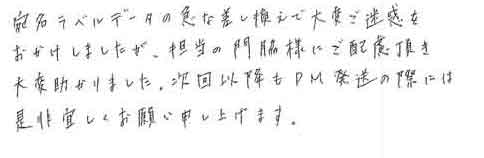 宛名ラベルデータの急な差し換えで大変ご迷惑を
おかけしましたが、担当の門脇様にご配慮頂き
大変助かりました。次回以降もDM発送の際には
是非宜しくお願い申し上げます。